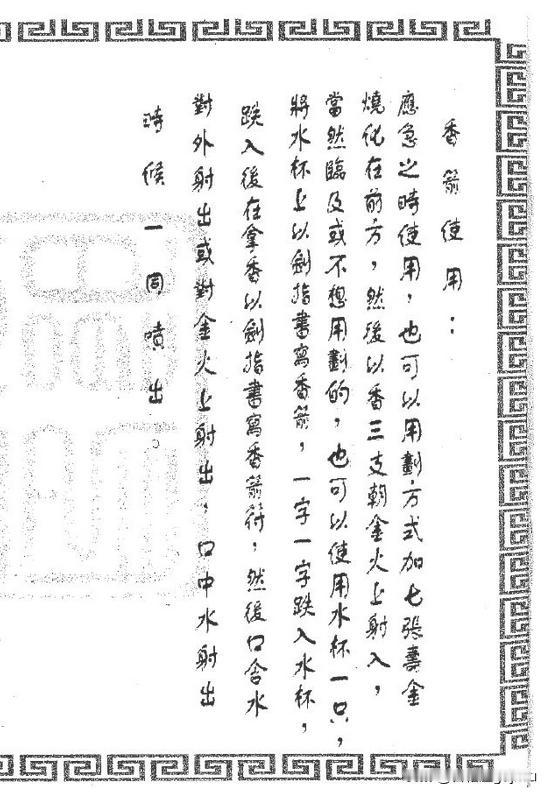 香箭使用：
應急之時使用，也可以用劃方式加七張壽金
燒化在前方，然後以香三支朝金火上射入，
當然臨及或不想用劃的，也可以使用水杯一只，
將水杯上以劍指書寫香箭，一字一字跌入水杯，
跌入後在拿香以劍指書寫香箭符，然後口含水
對外射出或對金火上射出，口中水射出
時候一同噴出。